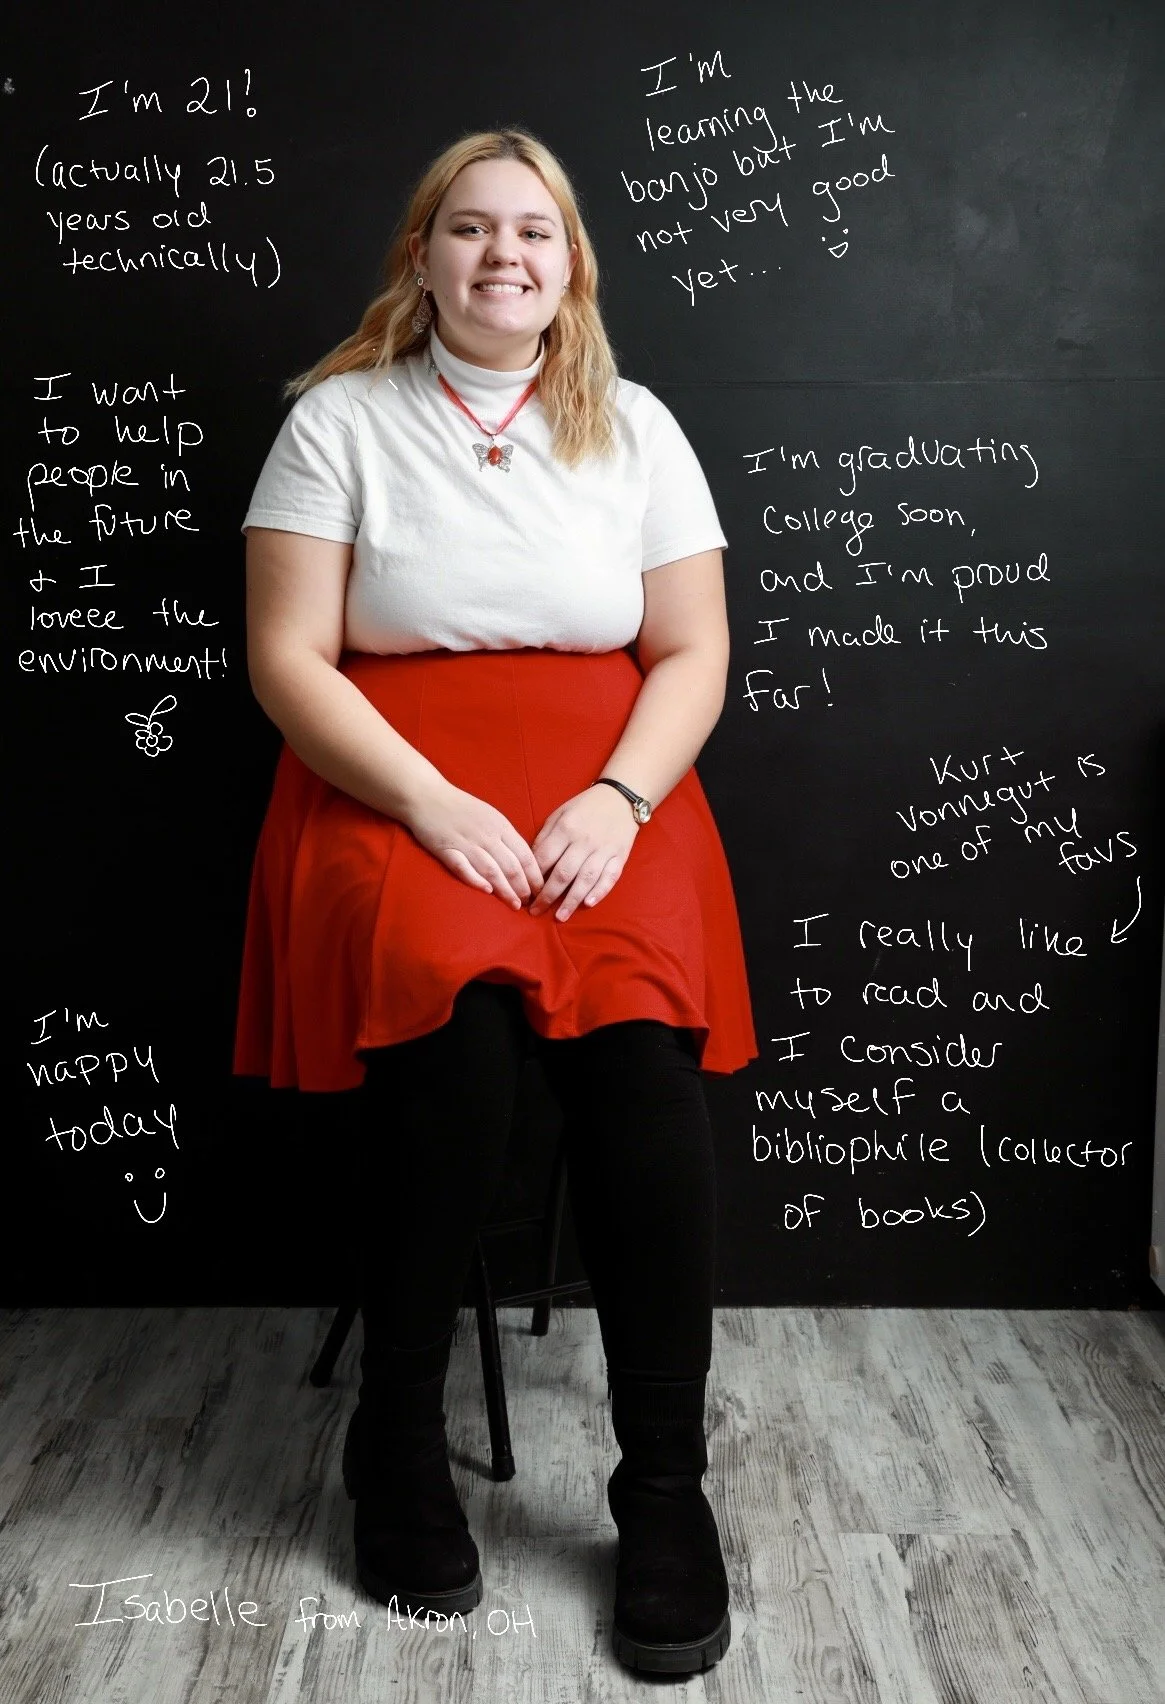 I'm 21!
(actually 21.5
years old
technically)
I'm
learning the
banjo but I'm
not very good
yet...
I want
to help
people in
the future
& I
loveee the
environment!
I'm graduating
College soon,
and I'm proud
I made it this
far!
Kurt
vonnegut is
one of my
favs
I really like
to read and
I consider
myself a
bibliophile (collector
of books)
I'm
happy
today
Isabelle from Akron, OH